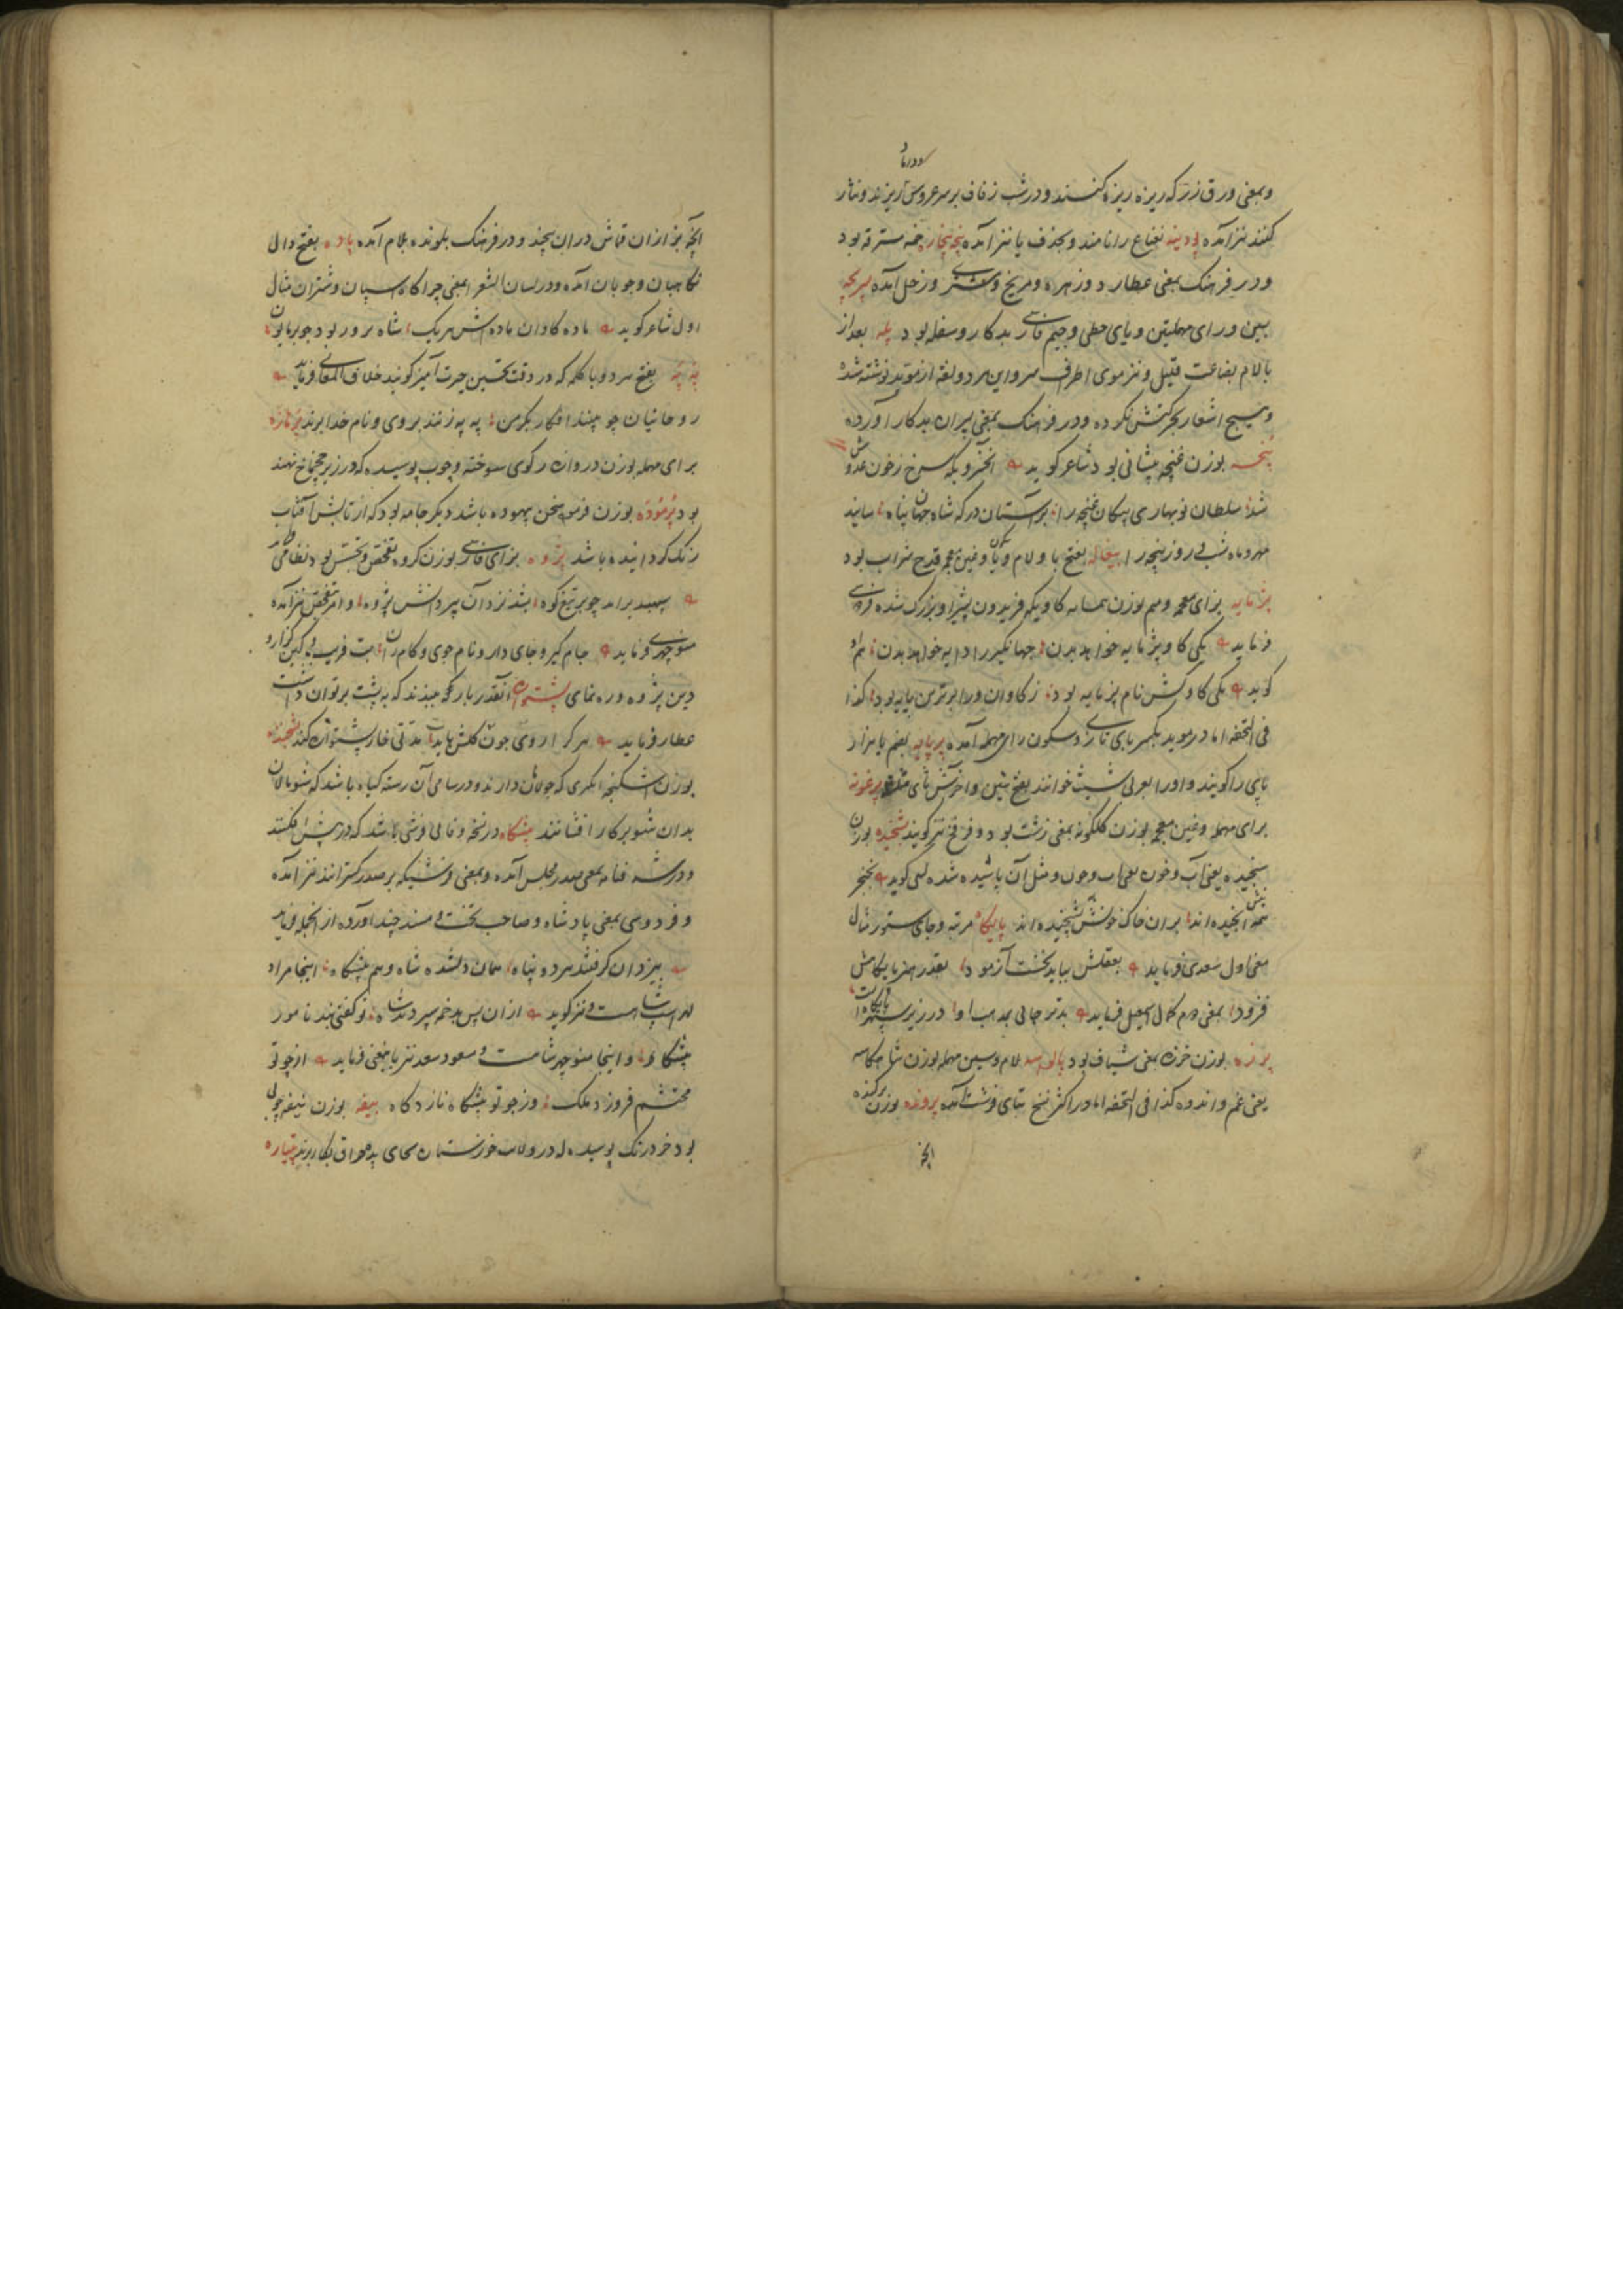 وبمعنی ورق زر که ریزه ریزه کنند ودر شب زفاف بر سر عروس ریزند ونثار
کنند نیز آمده پودینه نعناع را نامند وبحذف یا نیز آمده پنجه بیچاره خمسه مسترقه بود
ودر فرهنگ بمعنی عطارد وزهره ومریخ ومشتری وزحل آمده
بسین ورای مهملتین ویای حطی وجیم فارسی بدکار وسفله بود پله بعد از
با لام بضاعت قلیل ونیز موی اطراف سر واین هر دو لغه از موید نوشته شده
وهیچ اشعار بحرکتش نکرده ودر فرهنگ بمعنی پیران بدکار آورده
بوزن غنچه پیشانی بود شاعر گوید سرخ ز خون عدوش
شد سلطان نوبهاری پیکان غنچه را بر آستان درکه شاه جهان پناه سایند
مهر وماه شب وروز پنجه را پیغاله بفتح با ولام وغین معجمه قدح شراب بود
پرمایه برای معجمه ومیم بوزن همسایه گاوی که فریدون پیرا وبزرگ شده فردوسی
فرماید یکی گاو پرمایه خواهد بدن جهانگیر را دایه خواهد بدن هم او
گوید یکی گاو کش نام پرمایه بود ز گاوان ورا برترین پایه بود کذا
فی التحفه اما در موید بکسر بای تازی وسکون رای مهمله آمده پرپایه بضم با هزار
پای را گویند واورا بعربی شبث خوانند بفتح شین وآخرش ثای مثلثه پرغونه
برای مهمله وغین معجمه بوزن گلگونه بمعنی زشت بود وفرخج نیز گویند پشنجیده بوزن
سنجیده یعنی آب وخون ومثل آن پاشیده شده گوید بخنجر
همه تنش انجیده اند بران خاک خونش پشنجیده اند پایگاه مرتبه وجای ستور مثال
معنی اول سعدی فرماید بعقلش بباید نخست آزمود بقدر هنر پایگاهش
فزود بمعنی دوم کمال اسمعیل فرماید بدتر جائی در زیر سپهر پایگاهست
پرزه بوزن خرزه بمعنی شیاف بود پالواسه بلام وسین مهمله بوزن شاهکاسه
یعنی غم واندوه کذا فی التحفه اما در اکثر نسخ بتای قرشت آمده پرونده بوزن پرکنده
آنچه
آنچه بزازان قماش دران پیچند ودر فرهنگ بلونده بلام آمده پاده بفتح دال
نگاهبان وچوپان آمده ودر لسان الشعرا بمعنی چراگاه اسپان وشتران مثال
اول شاعر گوید ماده گاوان پاده اش هریک شاه پرور بود چو برمایون
په په بفتح هر دو با کلمه که در وقت تحسین حیرت آمیز گویند خلاق المعانی فرماید
روحانیان چو بینند افکار بکر من په په زنند بروی ونام خدا برند پرهازه
برای مهمله بوزن دروازه رکوی سوخته وچوب پوسیده که در زیر چخماخ نهند
بود پرموده بوزن فرموده سخن بیهوده باشد دیگر جامه بود که از تابش آفتاب
رنگ گردانیده باشد پژوه برای فارسی بوزن کروه تفحص وتجسس بود نظامی فرماید
سپهبد برآمد چو بر تیغ کوه بشد نزد آن پیر دانش پژوه وامر بتفحص نیز آمده
منوچهری فرماید جام گیر وجای دار ونام جوی وکام ران بت فریب وکین گزار و
دین پژوه وره نمای پشتواره آنقدر بار که به پشت بر توان داشت
عطار فرماید هر کرا روی چون گلش باید مدتی خار پشتواره کند پشنجه
بوزن اشکنجه افکری که جولاهان دارند ودر سامی آن رسته گیاه باشد که شومالان
بدان شو بر کار افشانند پیشگاه در نسخه وفائی فرشی باشد که در پیش افکنند
ودر شرفنامه بمعنی صدر مجلس آمده وبمعنی فرشی که بر صدر گسترانند نیز آمده
وفردوسی بمعنی پادشاه وصاحب تخت ومسند چند آورده از آنجمله فرماید
بیزدان گرفتند هر دو پناه همان دلشده شاه وهم پیشگاه اینجا مراد
لهراسب شاه است ونیز گوید از آن پس بدخمه سپردند شاه تو گفتی نبد نامور
پیشگاه واینجا منوچهر شاه است ومسعود سعد نیز باین معنی فرماید از چو تو
محتشم فروزد ملک وز چو تو پیشگاه نازد گاه پیفه بوزن نیفه چوبی
بود خردرنگ پوسیده که در ولایت خوزستان بجای پده حراق بکار برند پتیاره